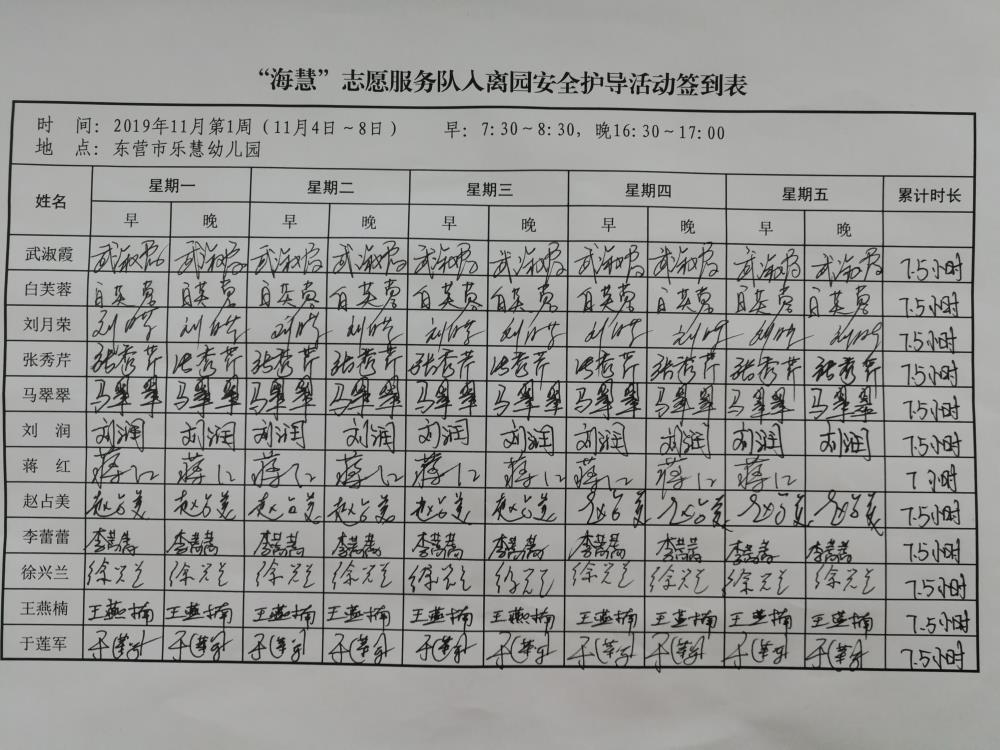 “海慧”志愿服务队入离园安全护导活动签到表
时 间：2019年11月第1周（11月4日～8日） 早：7:30～8:30，晚16:30～17:00
地 点：东营市乐慧幼儿园
姓名 星期一 星期二 星期三 星期四 星期五 累计时长
早 晚 早 晚 早 晚 早 晚 早 晚
武淑霞 武淑霞 武淑霞 武淑霞 武淑霞 武淑霞 武淑霞 武淑霞 武淑霞 武淑霞 武淑霞 7.5小时
白芙蓉 白芙蓉 白芙蓉 白芙蓉 白芙蓉 白芙蓉 白芙蓉 白芙蓉 白芙蓉 白芙蓉 白芙蓉 7.5小时
刘月荣 刘月荣 刘月荣 刘月荣 刘月荣 刘月荣 刘月荣 刘月荣 刘月荣 刘月荣 刘月荣 7.5小时
张秀芹 张秀芹 张秀芹 张秀芹 张秀芹 张秀芹 张秀芹 张秀芹 张秀芹 张秀芹 张秀芹 7.5小时
马翠翠 马翠翠 马翠翠 马翠翠 马翠翠 马翠翠 马翠翠 马翠翠 马翠翠 马翠翠 马翠翠 7.5小时
刘 润 刘润 刘润 刘润 刘润 刘润 刘润 刘润 刘润 刘润 刘润 7.5小时
蒋 红 蒋红 蒋红 蒋红 蒋红 蒋红 蒋红 蒋红 蒋红 蒋红 7小时
赵占美 赵占美 赵占美 赵占美 赵占美 赵占美 赵占美 赵占美 赵占美 赵占美 赵占美 7.5小时
李蕾蕾 李蕾蕾 李蕾蕾 李蕾蕾 李蕾蕾 李蕾蕾 李蕾蕾 李蕾蕾 李蕾蕾 李蕾蕾 李蕾蕾 7.5小时
徐兴兰 徐兴兰 徐兴兰 徐兴兰 徐兴兰 徐兴兰 徐兴兰 徐兴兰 徐兴兰 徐兴兰 徐兴兰 7.5小时
王燕楠 王燕楠 王燕楠 王燕楠 王燕楠 王燕楠 王燕楠 王燕楠 王燕楠 王燕楠 王燕楠 7.5小时
于莲军 于莲军 于莲军 于莲军 于莲军 于莲军 于莲军 于莲军 于莲军 于莲军 于莲军 7.5小时